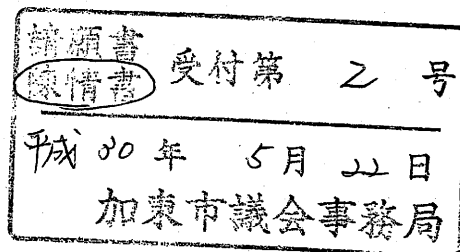 請願書
陳情書 受付第 2 号
平成 30 年 5月 22日
加東市議会事務局